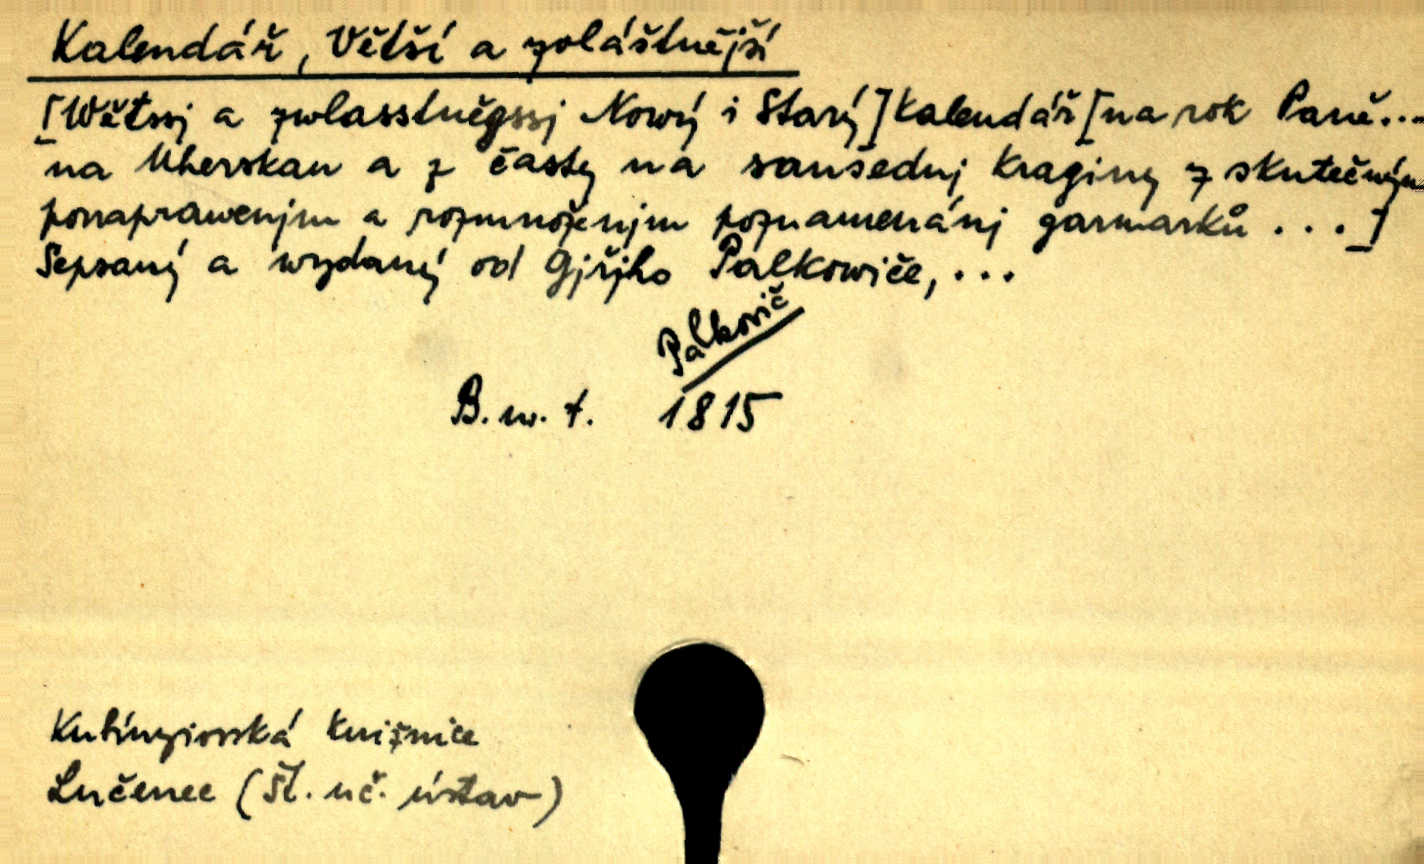 Kalendář, Větší a zvláštnější
[Wětssj a zwlasstněgssj Nowý i Starý] Kalendář [na rok Paně...
na Uherskau a z částy na saušednj Kraginy z skutečným
ponaprawenjm a rozmnoženjm poznamenánj garmarků . . . ]
Sepsaný a wydaný od Gjřjho Palkowiče, . . .
Palkovič
B. m. t. 1815
Kubínyiovská knižnice
Lučenec (Št. uč. ústav)